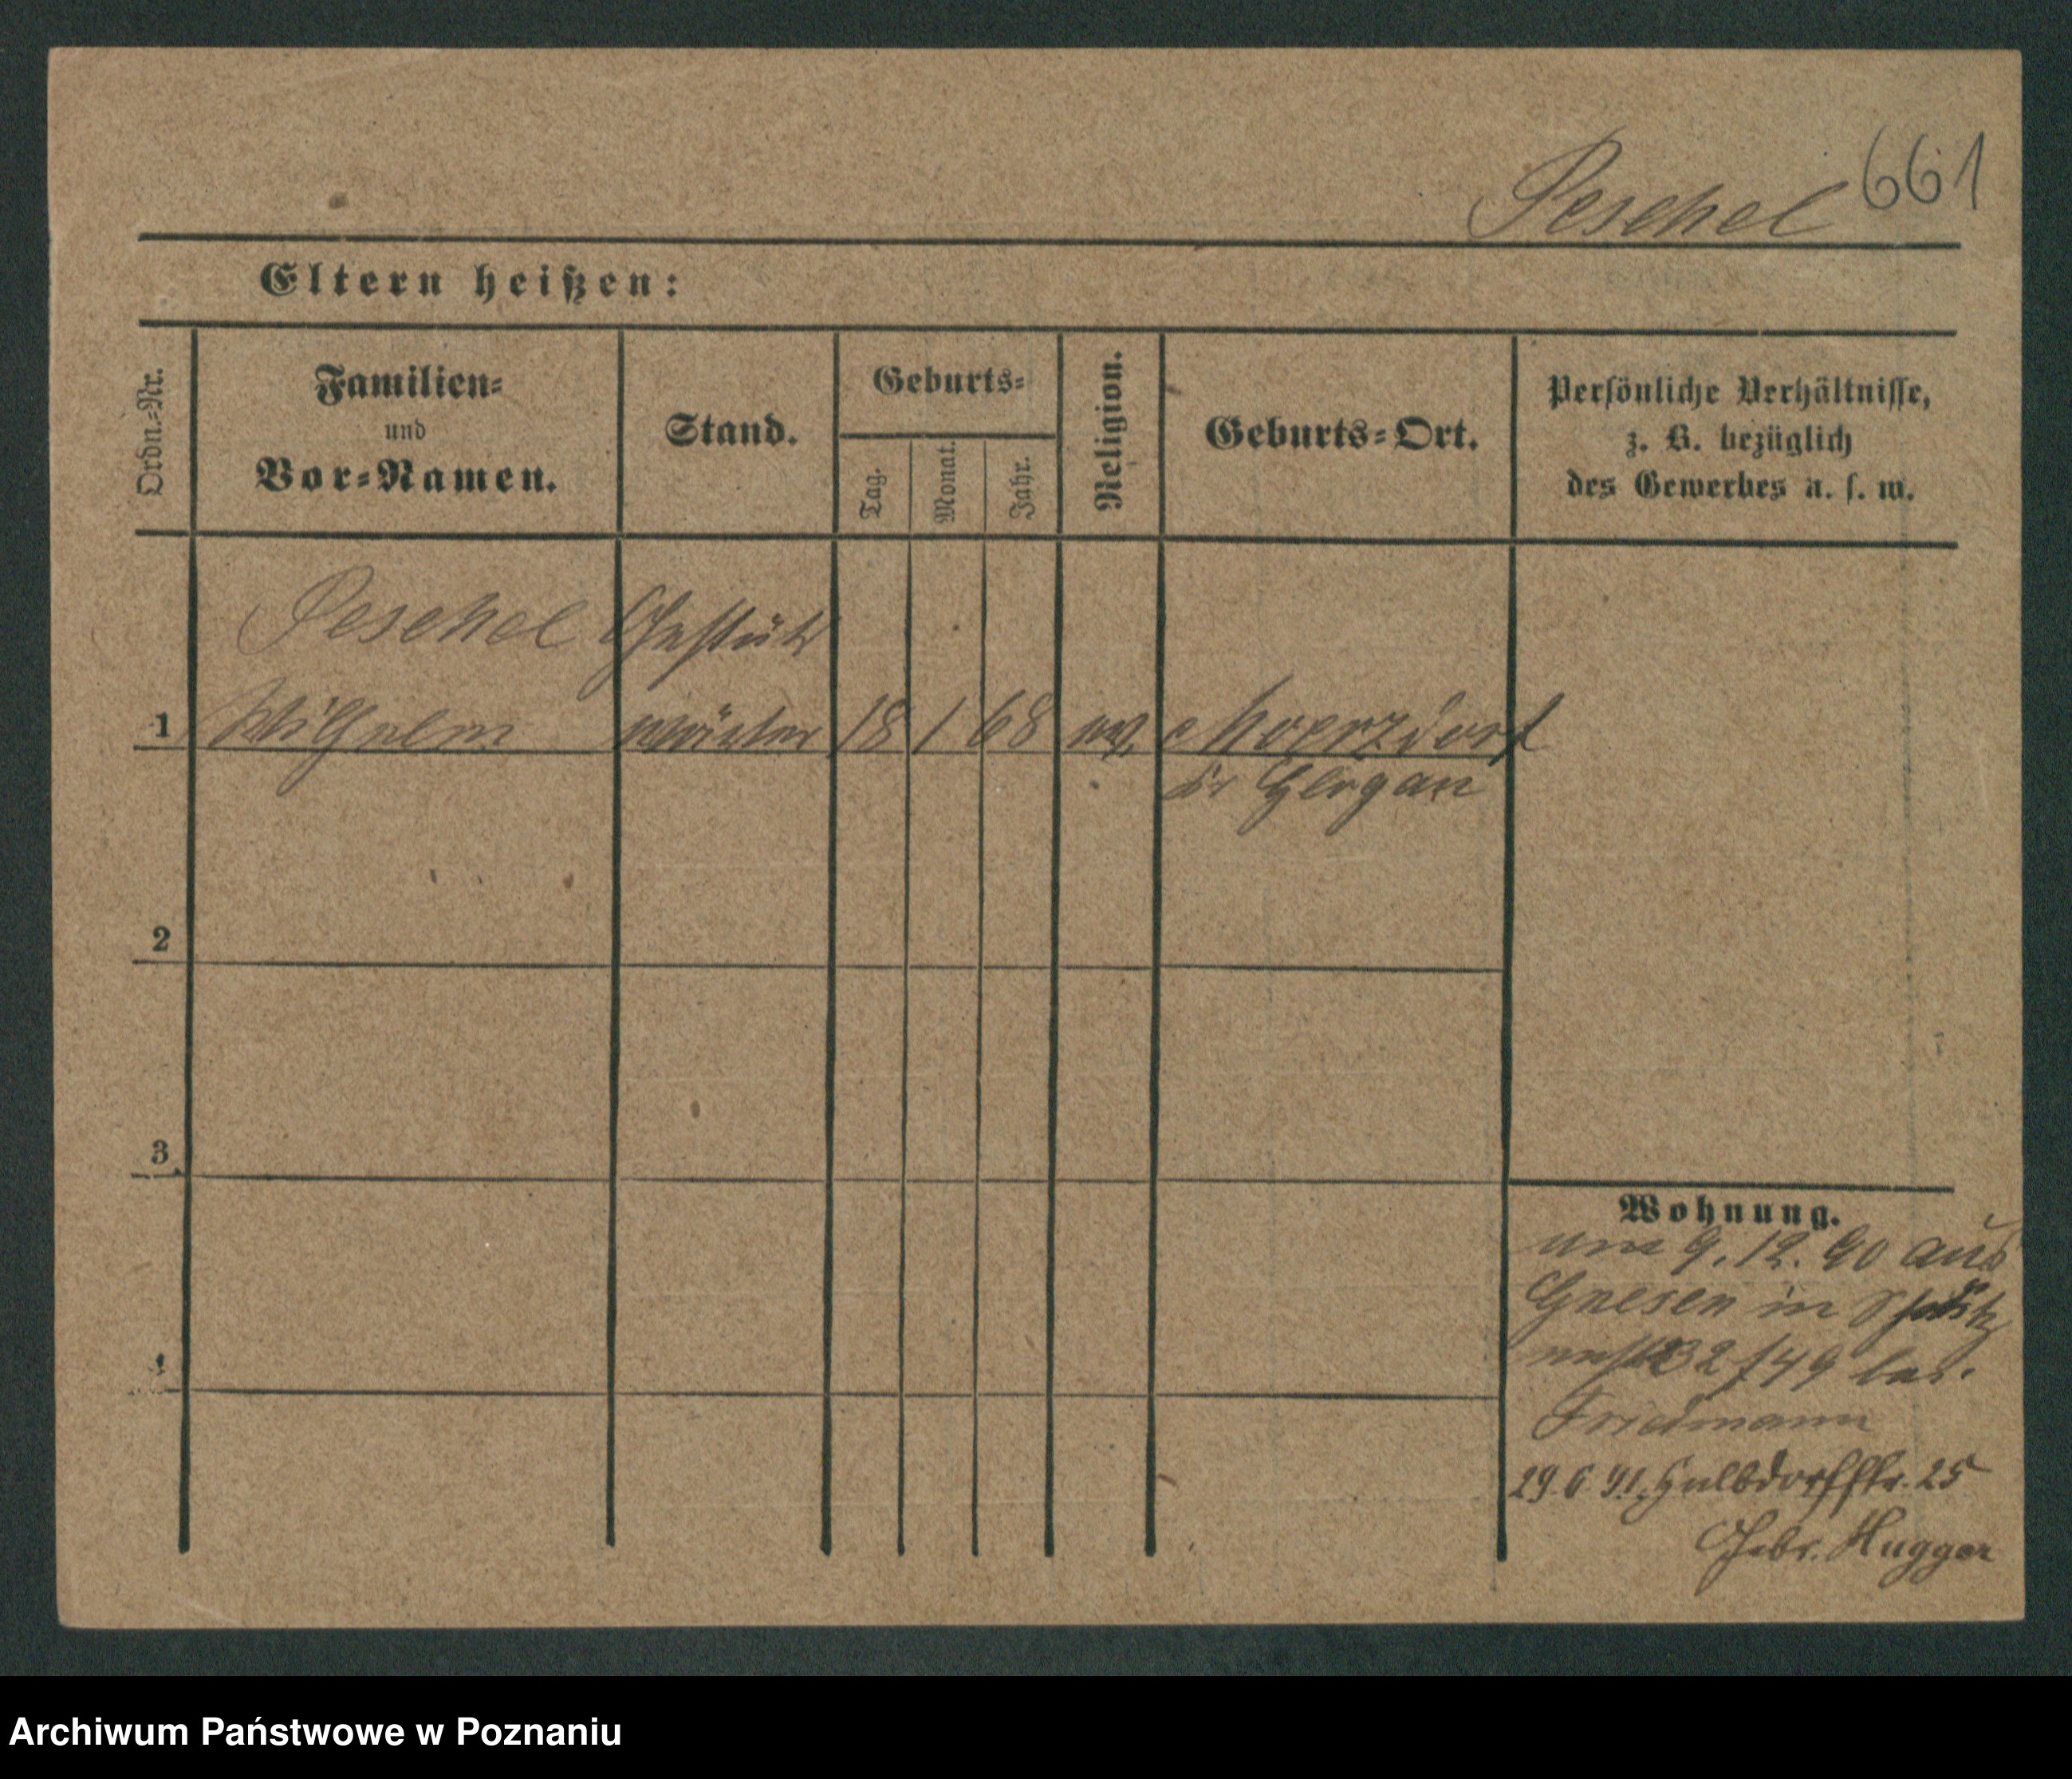 Peschel 661
Eltern heißen:
Ordn.-Nr.
Familien-
und
Vor-Namen.
Stand.
Geburts-
Tag.
Monat.
Jahr.
Religion.
Geburts-Ort.
Persönliche Verhältnisse,
z. B. bezüglich
des Gewerbes u. s. w.
Peschel Gestüt
1 Wilhelm wärter 18 1 68 ev.
Kr Glogau
2
3
4
Wohnung.
9. 12. 90 aus
Gnesen in
32/49 bei
Friedmann
29 6 91. Halbdorfstr. 25
Gebr. Hugger
Archiwum Państwowe w Poznaniu